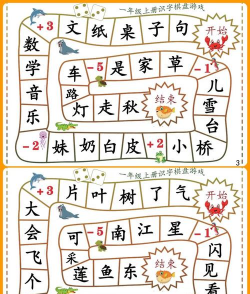 一年级上册识字棋盘游戏
+3 文 纸 桌 子 句 开始
数 车 -5 是 家 草 -1 儿
学 路 雪
音 灯 走 秋 结束 台
乐 灯
-2 妹 奶 白 皮 +2 小 桥
3
一年级上册识字棋盘游戏
+3 片 叶 树 了 气 开始
大 可 -5 南 江 星 -1 闪
会 采 见
飞 莲 鱼 东 结束 看
个